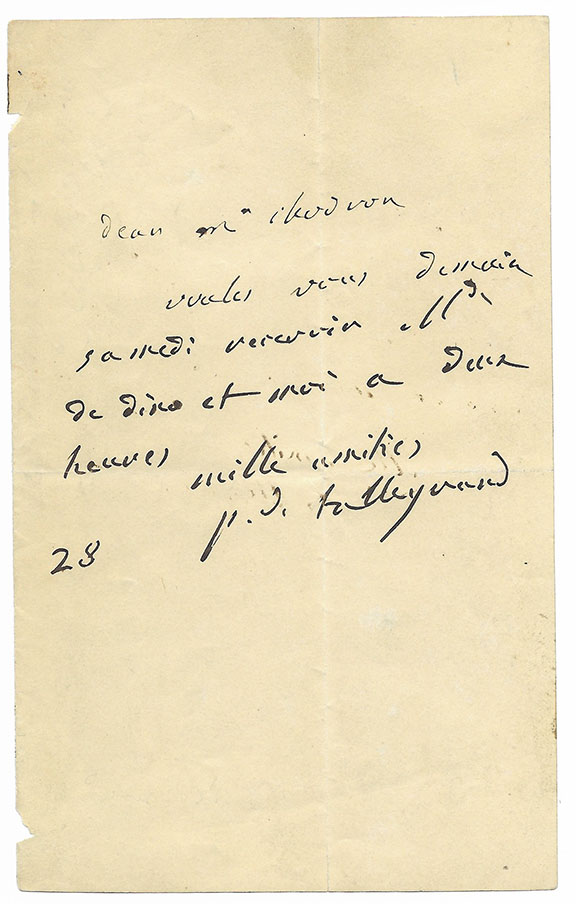 dear mr
voulez vous demain
samedi recevoir Mde
de dino et moi a deux
heures mille amitiés
p. d. talleyrand
28